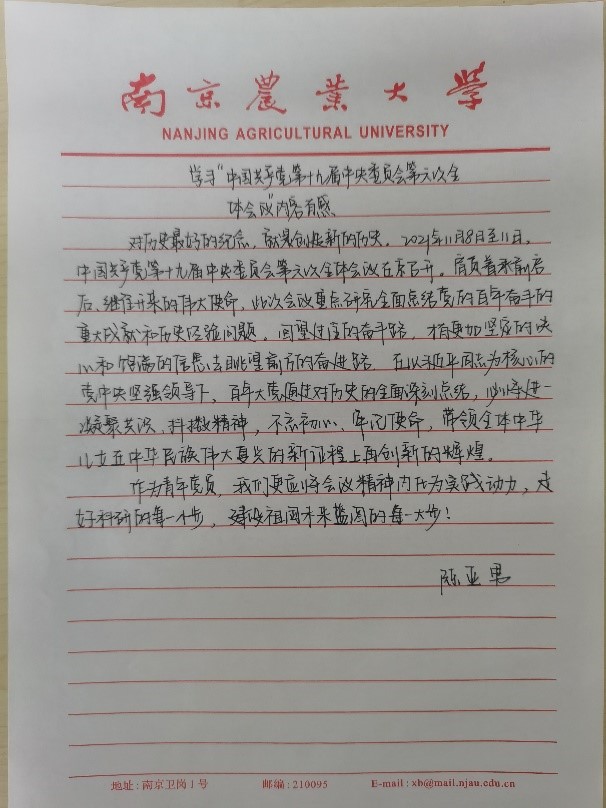 南京農業大学
NANJING AGRICULTURAL UNIVERSITY
学习“中国共产党第十九届中央委员会第六次全
体会议”内容有感
对历史最好的纪念,就是创造新的历史。2021年11月8日至11日,
中国共产党第十九届中央委员会第六次全体会议在京召开。肩负着承前启
后、继往开来的伟大使命,此次会议重点研究全面总结党的百年奋斗的
重大成就和历史经验问题。回望过往的奋斗路,才有更加坚定的决
心和饱满的信念去眺望前方的奋进路。在以习近平同志为核心的
党中央坚强领导下,百年大党通过对历史的全面深刻总结,必将进一
凝聚共识、抖擞精神,不忘初心、牢记使命,带领全体中华
儿女在中华民族伟大复兴的新征程上再创新的辉煌。
作为青年党员,我们更应将会议精神内化为实践动力,走
好科研的每一小步,建设祖国未来蓝图的每一大步!
陈亚男
地址:南京卫岗1号 邮编:210095 E-mail:xb@mail.njau.edu.cn